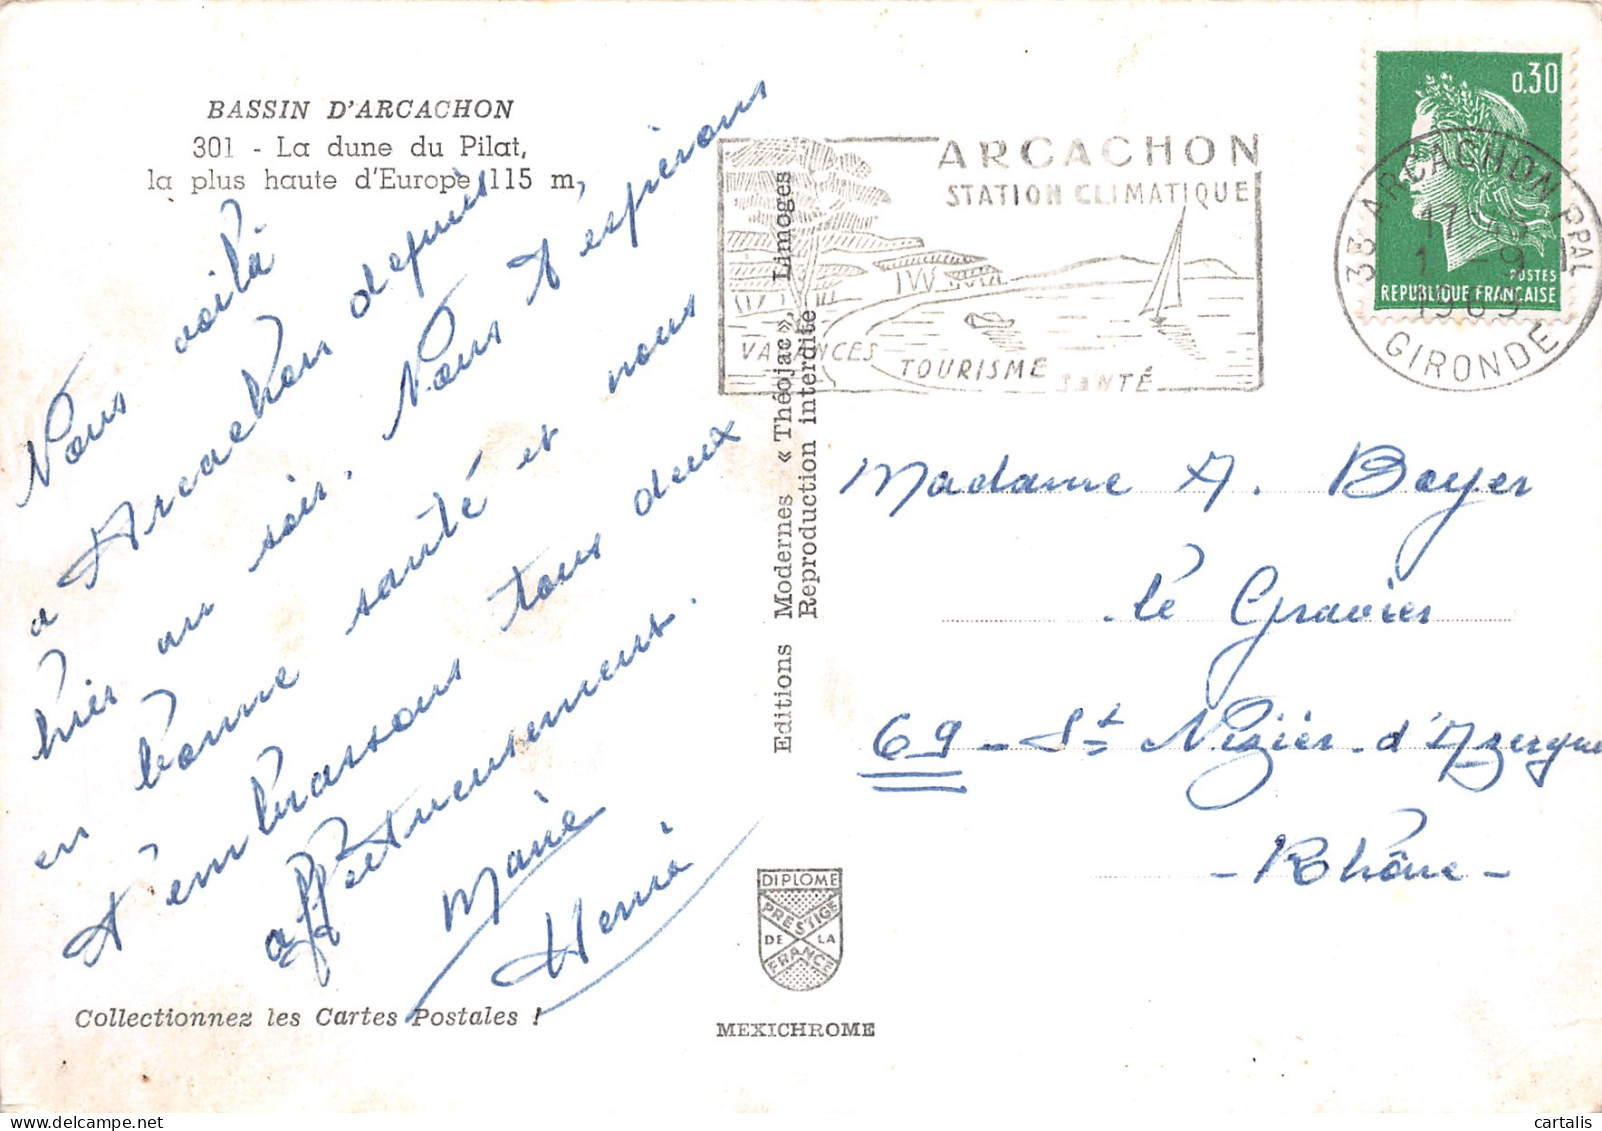 BASSIN D'ARCACHON
301 - La dune du Pilat,
la plus haute d'Europe 115 m,
Nous voilà
à Arcachon depuis
hier au soir. Nous t'espérons
en bonne santé et nous
t'embrassons tous deux
affectueusement.
Marie
Henri
Collectionnez les Cartes Postales !
Editions Modernes « Théojac », Limoges
Reproduction interdite
DIPLOME
PRESTIGE
DE LA
FRANCE
MEXICHROME
ARCACHON
STATION CLIMATIQUE
VACANCES
TOURISME
SANTÉ
0,30
POSTES
REPUBLIQUE FRANÇAISE
33 ARCACHON PPAL
1 -9
1969
GIRONDE
Madame A. Boyer
Le Gravier
69 - St Nizier - d'Azergues
- Rhône -
cartalis
delcampe.net